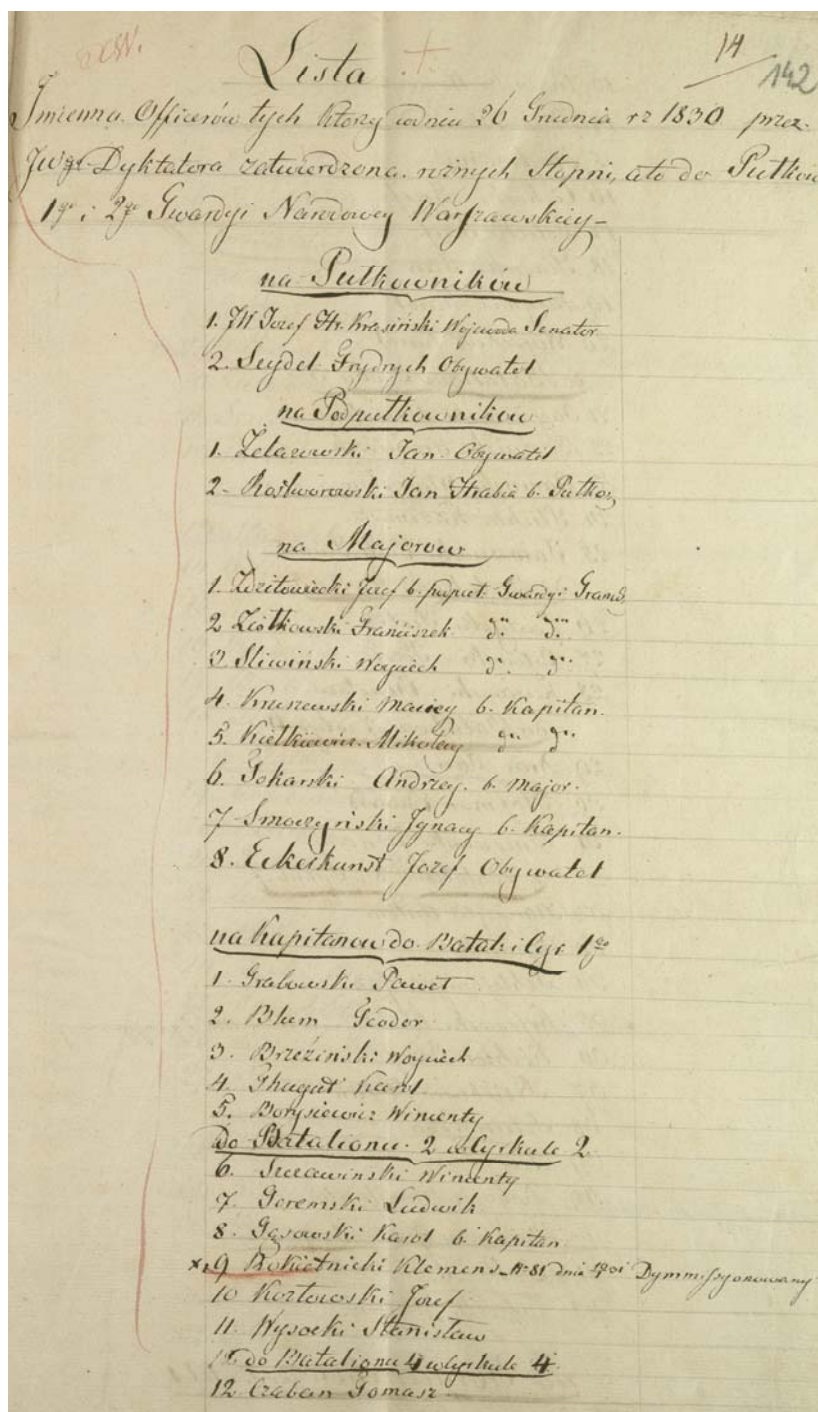 14
142
Lista
Imienna Officerów tych którzy w dniu 26 Grudnia rz 1830 przez
Dyktatora zatwierdzona rożnych Stopni, a to do Pułków
1go i 2go Gwardyi Narodowey Warszawskiey
na Pułkowników
1. JW Jozef Hr. Krasiński Wojewoda Senator
2. Seydel Frydrych Obywatel
na Podpułkowników
1. Żelazowski Jan Obywatel
2. Rostworowski Jan Hrabia b. Pułkow
na Majorow
1. Zdzitowiecki Jozef b. Gwardyi Gramd
2 Ziółkowski Franciszek do do
3 Sliwiński Woyciech do do
4. Kruszewski Maciey b. Kapitan.
5. Kiełkiewicz Mikołay do do
6. Tokarski Andrzey. b. major.
7 Smoczyński Jgnacy b. Kapitan.
8. Eckelkunst Jozef Obywatel
na Kapitanow do Batal: i Cyr 1go
1. Grabowski Paweł
2. Blum Teodor
3. Brzeziński Woyciech
4. Karol
5. Borysiewicz Wincenty
Do Batalionu 2 w Cyrkule 2
6. Szczawinski Wincenty
7. Goremski Ludwik
8. Gąsowski Karol b. Kapitan
x 9 Klemens No 81 dnia Dymmissyonowany
10 Kozłowski Jozef
11. Wysocki Stanisław
do Batalionu 4 w Cyrkule 4
12 Czaban Tomasz